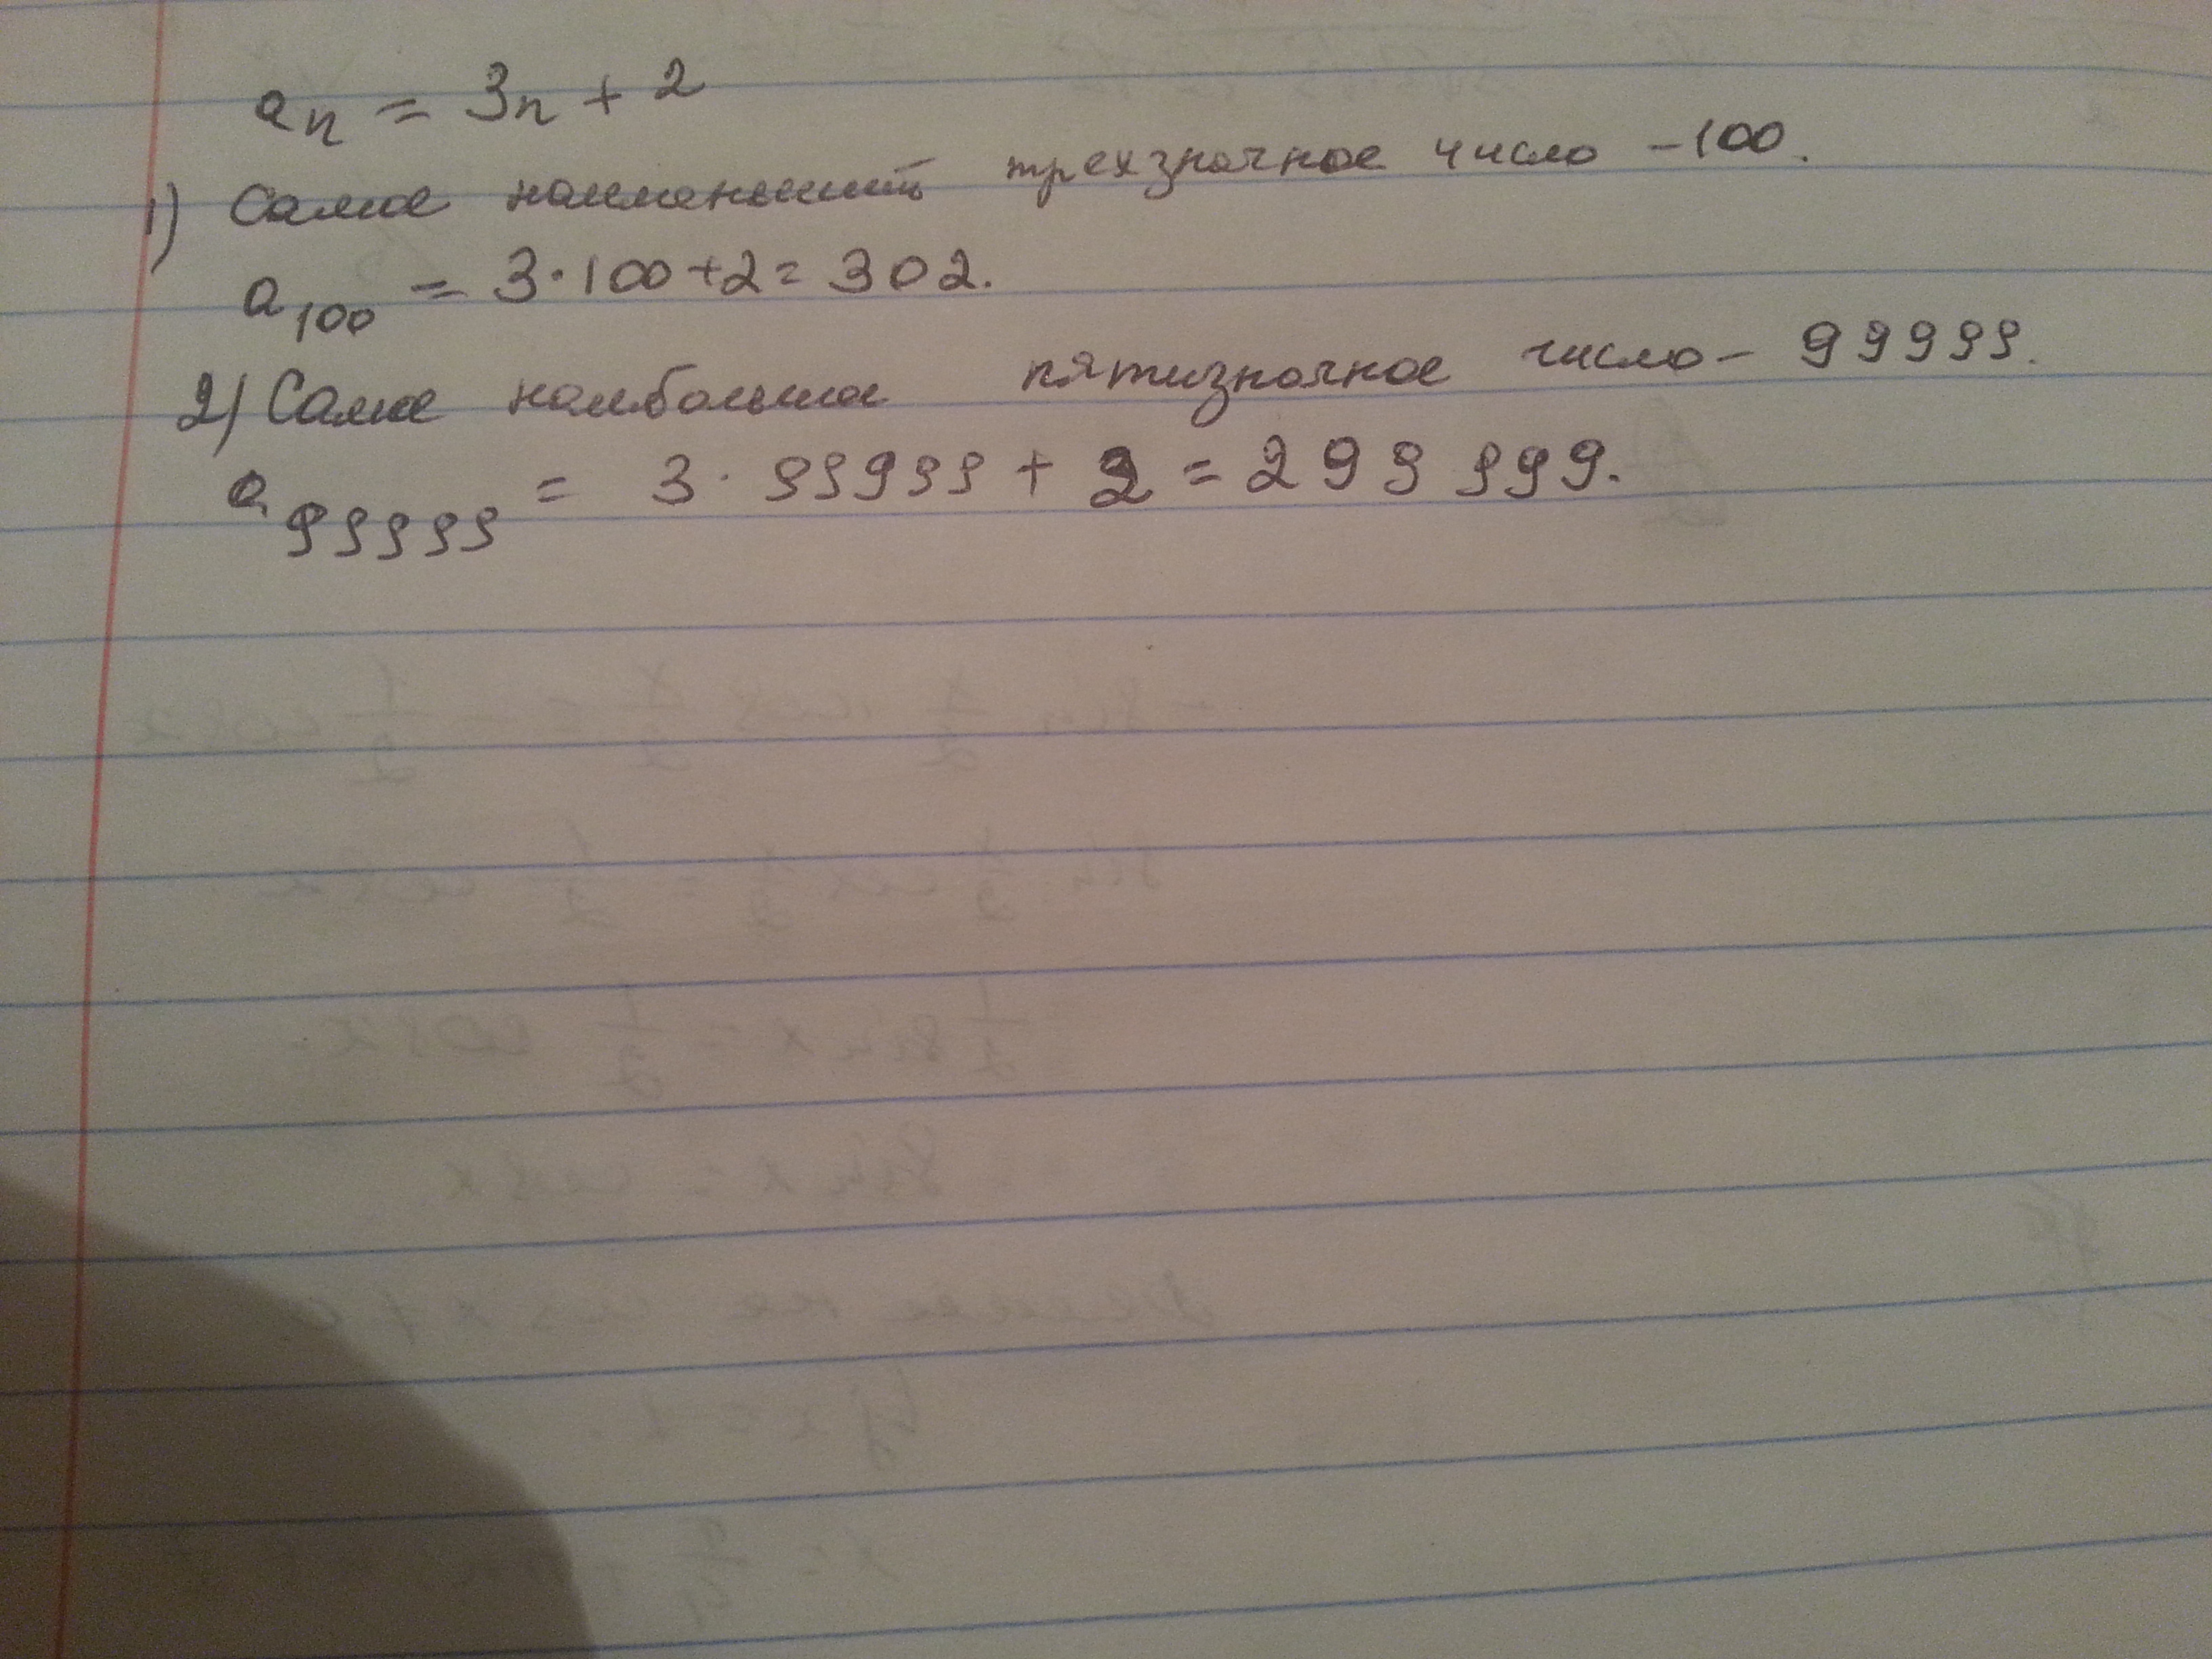 aₙ = 3n + 2
1) Самое наименьший трехзначное число – 100.
a₁₀₀ = 3·100+2= 302.
2) Самое наибольшое пятизначное число – 99999.
a₉₉₉₉₉ = 3·99999 + 2 = 299 999.